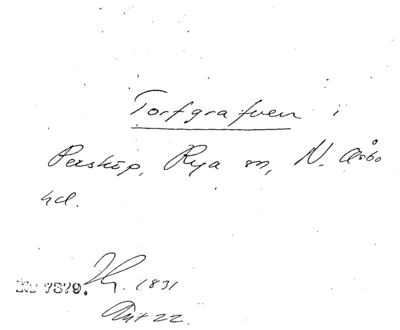 Torfgrafven i
Perstorp, Rya sn, N. Åsbo
hd.
7879.
1831
22